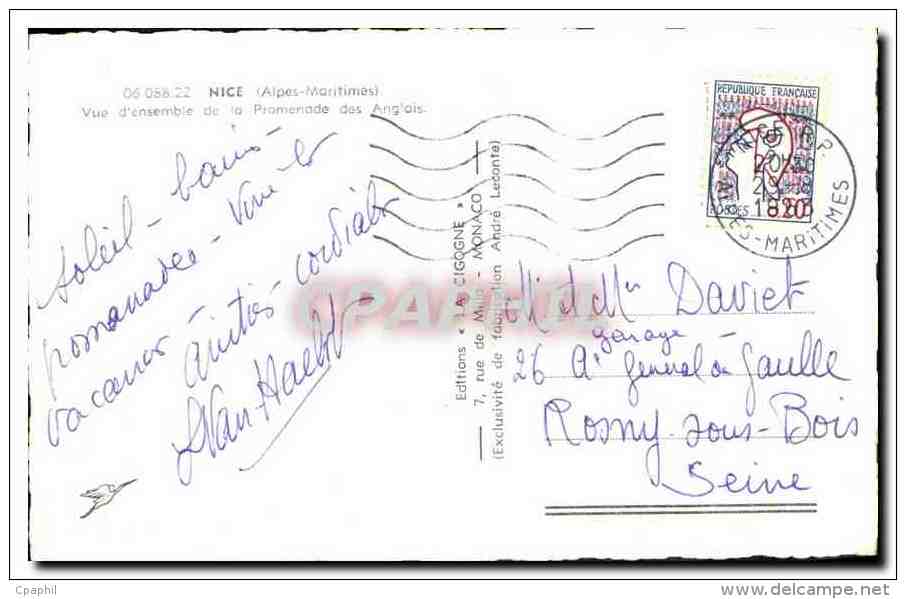 06 088 22 NICE (Alpes-Maritimes)
Vue d'ensemble de la Promenade des Anglais.
Soleil - bains -
promenades - Vive les
vacances - Amitiés cordiales
Editions " LA CIGOGNE "
7, rue de Millo - MONACO
(Exclusivité de fabrication André Leconte)
REPUBLIQUE FRANÇAISE
POSTES 0,20
NICE R.P.
ALPES-MARITIMES
M et Mme Daviet
garage
26 Av General de Gaulle
Rosny-sous-Bois
Seine
CPAPHIL
Cpaphil
www.delcampe.net